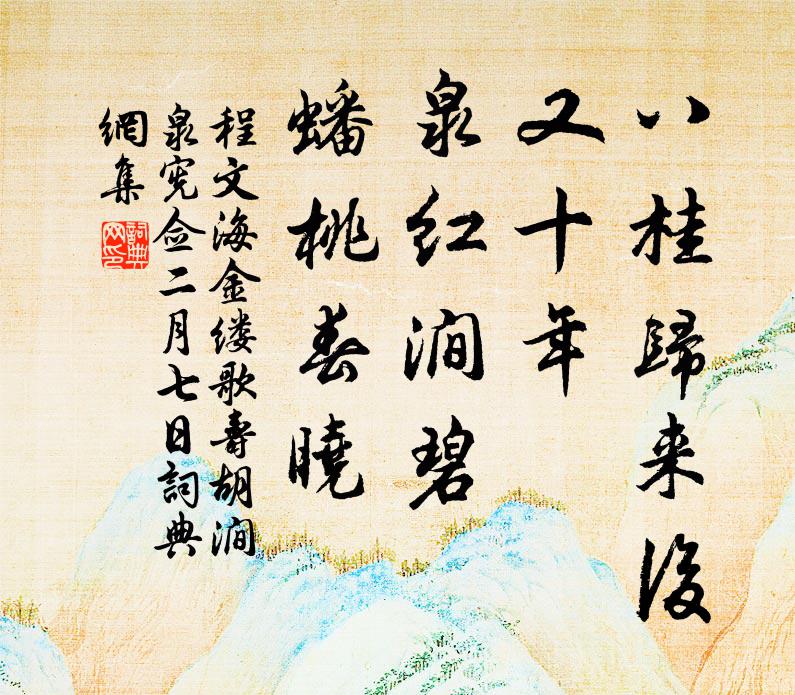 八桂歸来後
又十年
泉红澗碧
蟠桃春曉
程文海金缕歌壽胡澗
泉宪佥二月七日詞典
網集
詞典网印